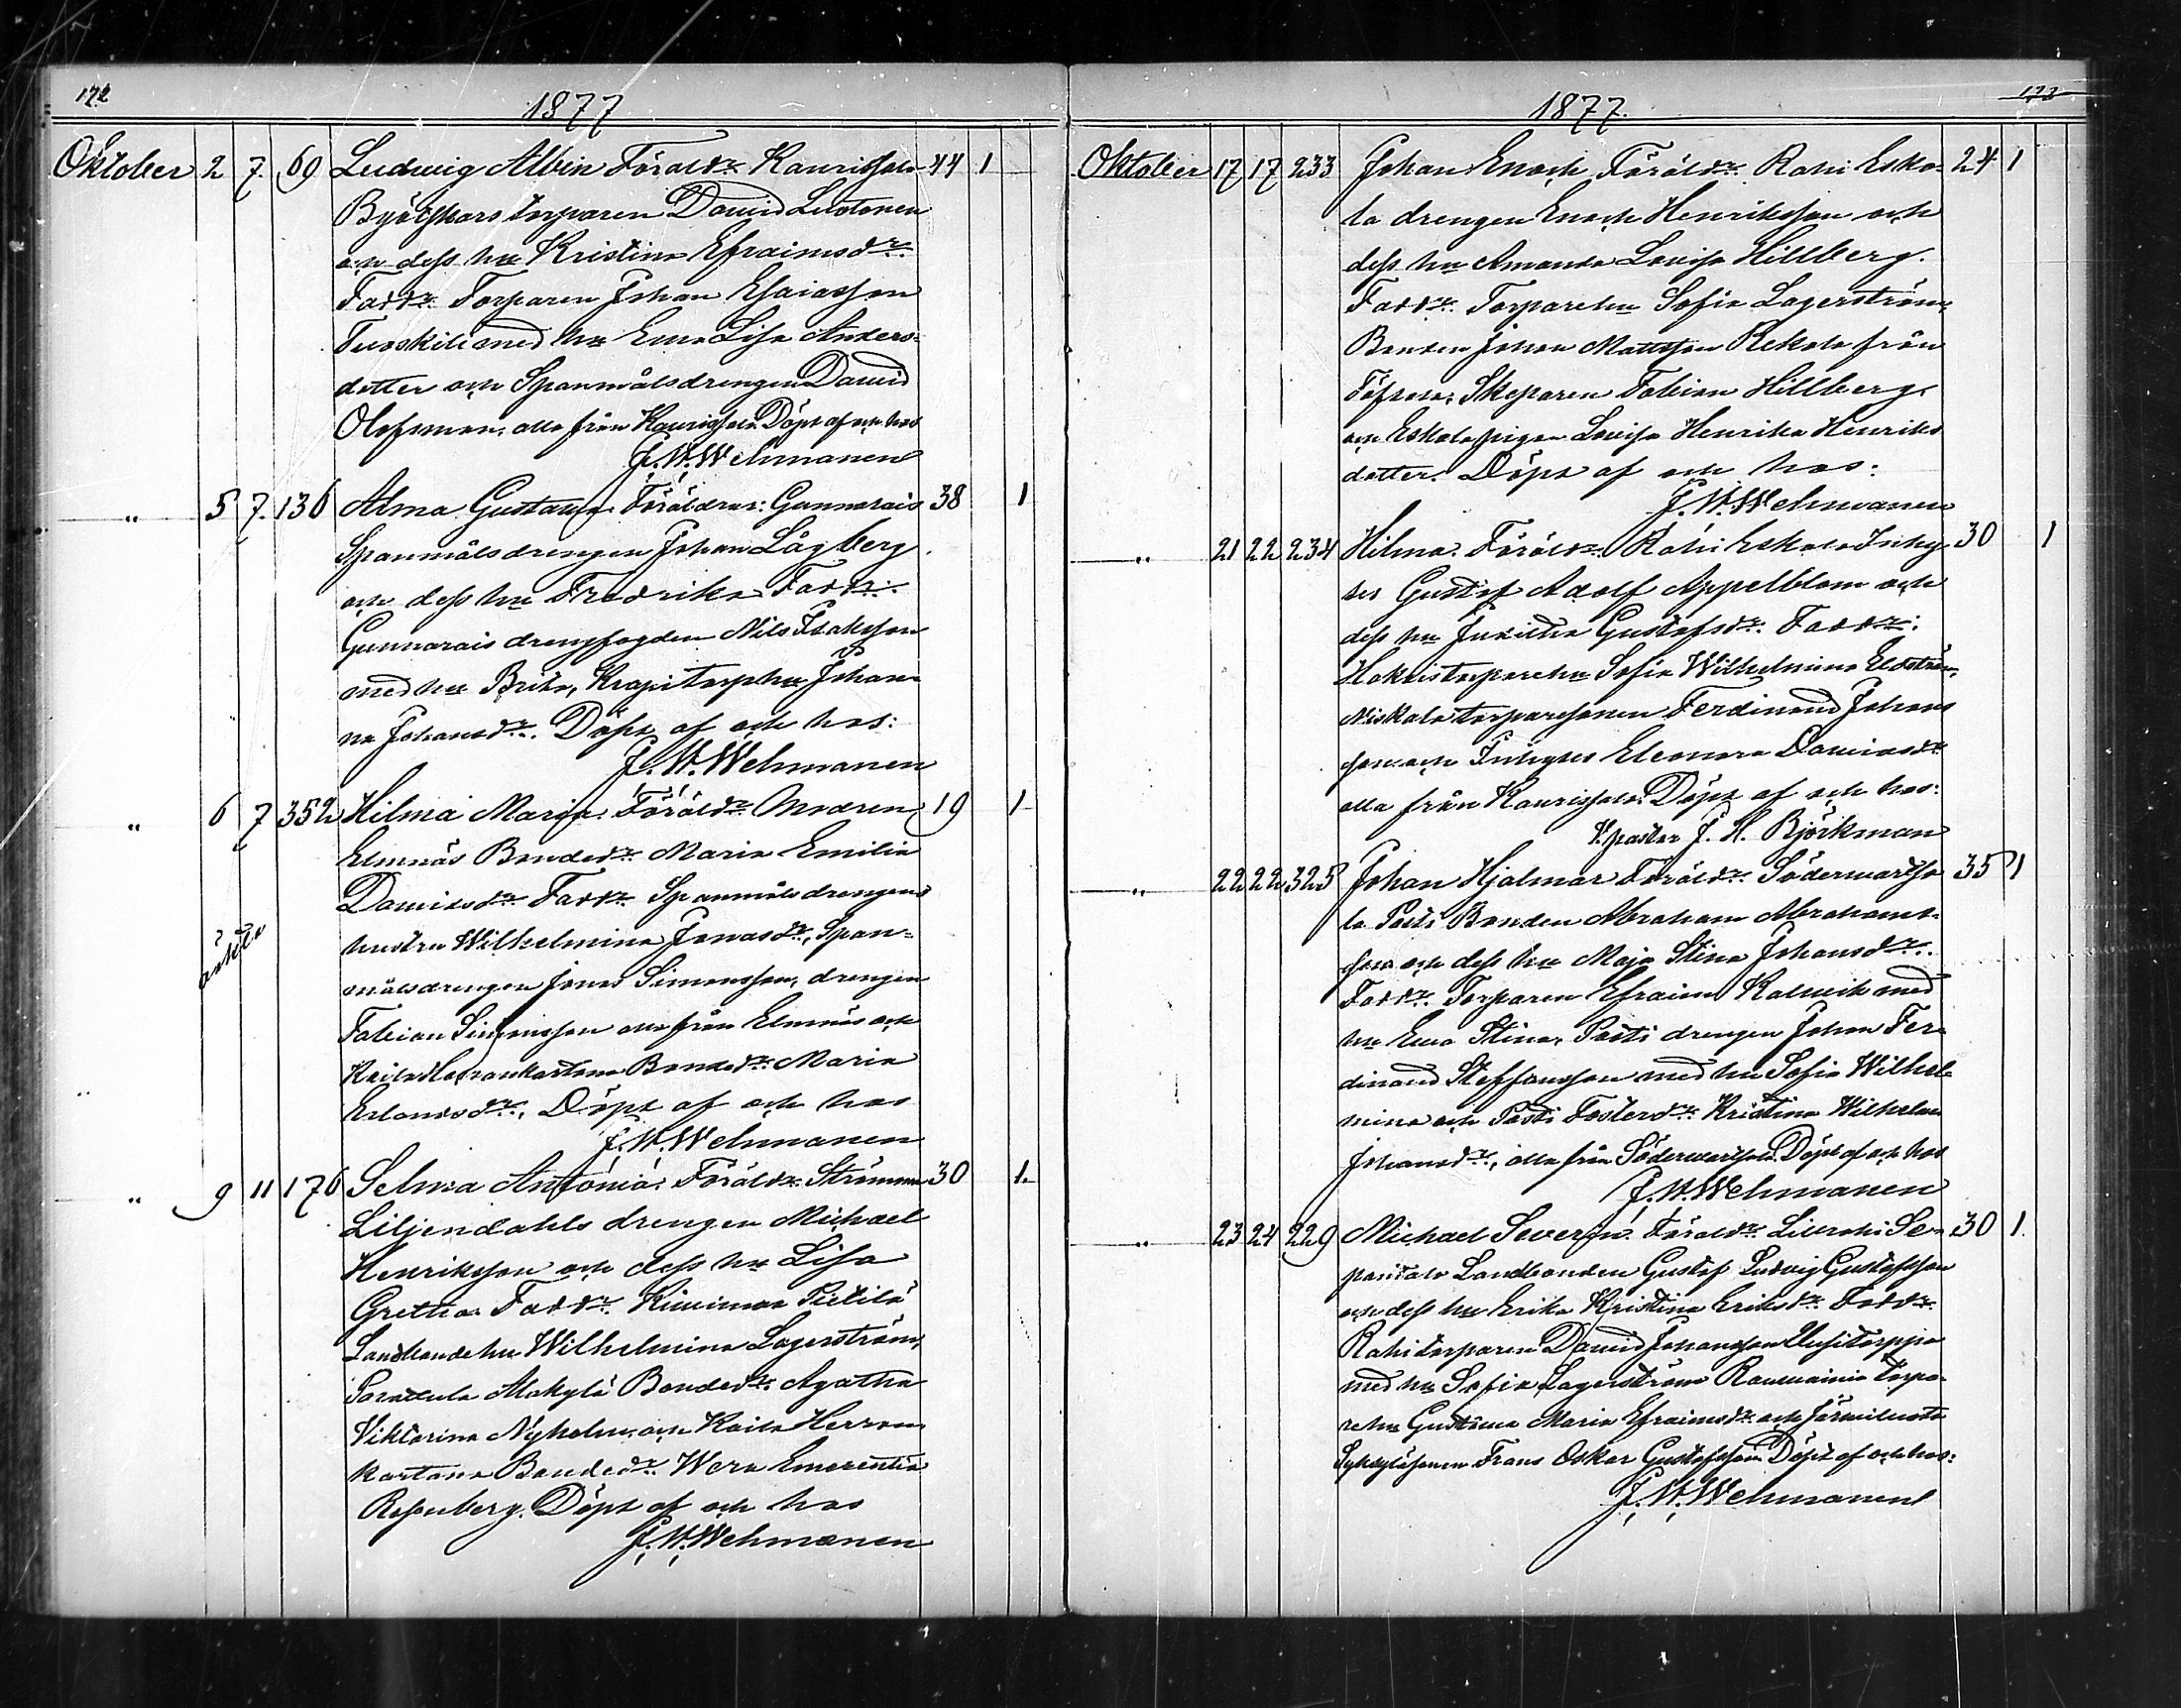 172
1877
Oktober 2 7. 69 Ludwig Albin Föräldr Kaurissalo 44 1
Byötskärs torparen David Luotonen
och dess hu Kristina Efraimsdr
Faddr Torparen Johan Esaiasson
Tuoskili med hu Eva Lisa Anders-
dotter och Spanmålsdrengen David
Olofsman, alla från Kaurissalo. Döpt af och hos
J. W. Wehmanen
" 5 7. 136 Alma Gustava. Föräldrar: Gunnarais 38 1
Spanmålsdrengen Johan Lågberg
och dess hu Fredrika Faddr:
Gunnarais drengfogden Nils Isaksson
med hu Brita, Krapitorphu Johan-
na Johansdr. Döpt af och hos:
J. W. Wehmanen
" 6 7 352 Hilma Maria. Föräldr Modren 19 1
Elmnäs Bondedr Maria Emilia
Davidsdr Faddr Spanmålsdrengens
hustru Wilhelmina Jonasdr, Span-
målsdrengen Jonas Simonsson, drengen
oäkta
Fabian Simonsson alla från Elmnäs och
Kaila Herrankartano Bondedr Maria
Erlandsdr, Döpt af och hos
J. W. Wehmanen
" 9 11 176 Selma Antonia. Föräldr Strömma 30 1.
Liljendahls drengen Michael
Henriksson och dess hu Lisa
Gretha Faddr. Kivimaa Pietilä
Landbondehu Wilhelmina Lagerström,
Parattula Alakylä Bondedr Agatha
Viktorina Nyholm och Kaila Herran
kartano Bondedr Wera Emerentia
Rosenberg. Döpt af och hos
J. W. Wehmanen
173
1877.
Oktober 17 17 233 Johan Enoch Föräldr Rahi Esko- 24 1
la drengen Enoch Henriksson och
dess hu Amanda Lovisa Hillberg.
Faddr. Torparehu Sofia Lagerström,
Bonden Johan Mattsson Rekola från
Töfsala, Skeparen Fabian Hillberg
och Eskola pigan Lovisa Henrika Henriks
dotter. Döpt af och hos:
J. W. Wehmanen
" 21 22 234 Hilma. Föräldr. Rahi Eskola Inhy- 30 1
ses Gustaf Adolf Appelblom och
dess hu Gustafsdr. Faddr:
torparehu Sofia Wilhelmina
torparesonen Ferdinand Johans
son och Inhyses Eleonora Davidsdr
alla från Kaurissalo. Döpt af och hos:
V. pastor J. H. Björkman
" 22 22 325 Johan Hjalmar Föräldr. Söderwartsa 35 1
la Pasti Bonden Abraham Abrahams-
son och dess hu Maja Stina Johansdr.
Faddr. Torparen Efraim Kalmik med
hu Eva Stina, Pasti drengen Johan Fer-
dinand Steffansson med hu Sofia Wilhel-
mina och Pasti Fosterdr Kristina Wilhelmina
Johansdr, alla från Söderwartsala. Döpt af och hos
J. W. Wehmanen
" 23 24 229 Michael Severin. Föräldr. Sil 30 1.
Landbonden Gustaf Ludvig Gustafsson
och dess hu Erika Kristina Eriksdr. Faddr
Rahi torparen David Johansson Uusitorppa
med hu Sofia Lagerström Raumainia Torpa-
rehu Gustava Maria Efraimsdr och
sonen Frans Oskar Gustafsson. Döpt af och hos:
J. W. Wehmanen